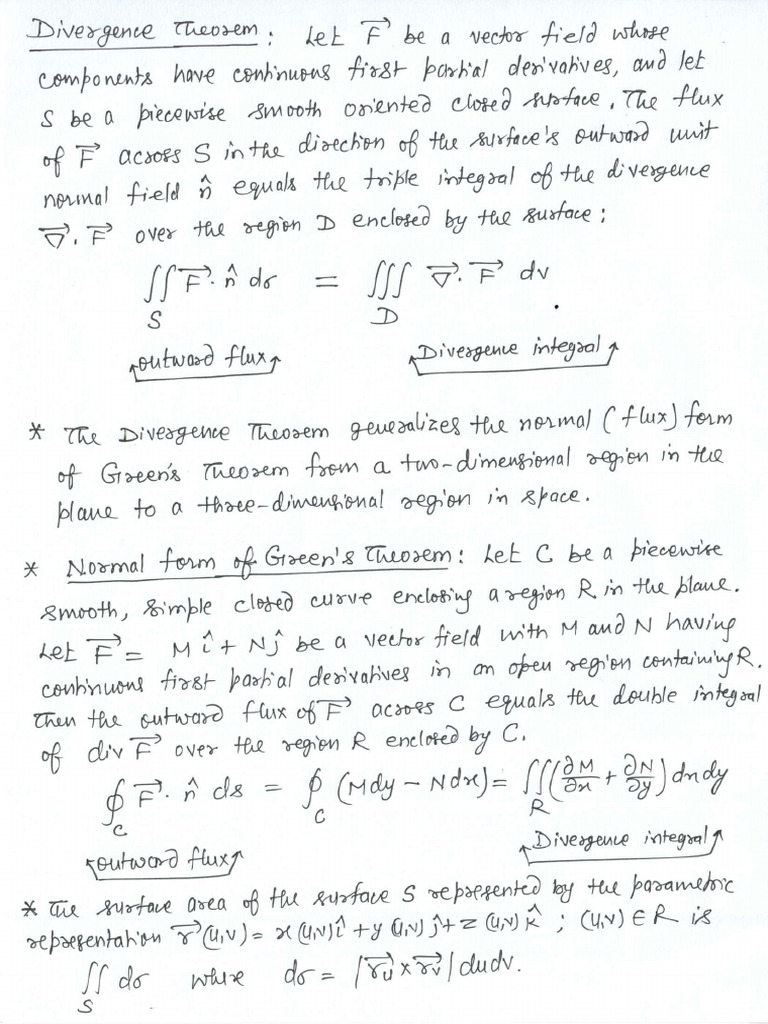 Divergence Theorem : Let F⃗ be a vector field whose
components have continuous first partial derivatives, and let
S be a piecewise smooth oriented closed surface. The flux
of F⃗ across S in the direction of the surface's outward unit
normal field n̂ equals the triple integral of the divergence
∇⃗. F⃗ over the region D enclosed by the surface :
∬_S F⃗. n̂ dσ = ∭_D ∇⃗. F⃗ dv
outward flux Divergence integral
* The Divergence Theorem generalizes the normal (flux) form
of Green's Theorem from a two-dimensional region in the
plane to a three-dimensional region in space.
* Normal form of Green's Theorem : Let C be a piecewise
smooth, simple closed curve enclosing a region R in the plane.
Let F⃗ = M î + N ĵ be a vector field with M and N having
continuous first partial derivatives in an open region containing R.
Then the outward flux of F⃗ across C equals the double integral
of div F⃗ over the region R enclosed by C.
∮_C F⃗. n̂ ds = ∮_C (Mdy - Ndx) = ∬_R (∂M/∂x + ∂N/∂y) dxdy
outward flux Divergence integral
* The surface area of the surface S represented by the parametric
representation r⃗(u,v) = x(u,v) î + y(u,v) ĵ + z(u,v) k̂ ; (u,v) ∈ R is
∬_S dσ where dσ = |r⃗u x r⃗v| dudv.